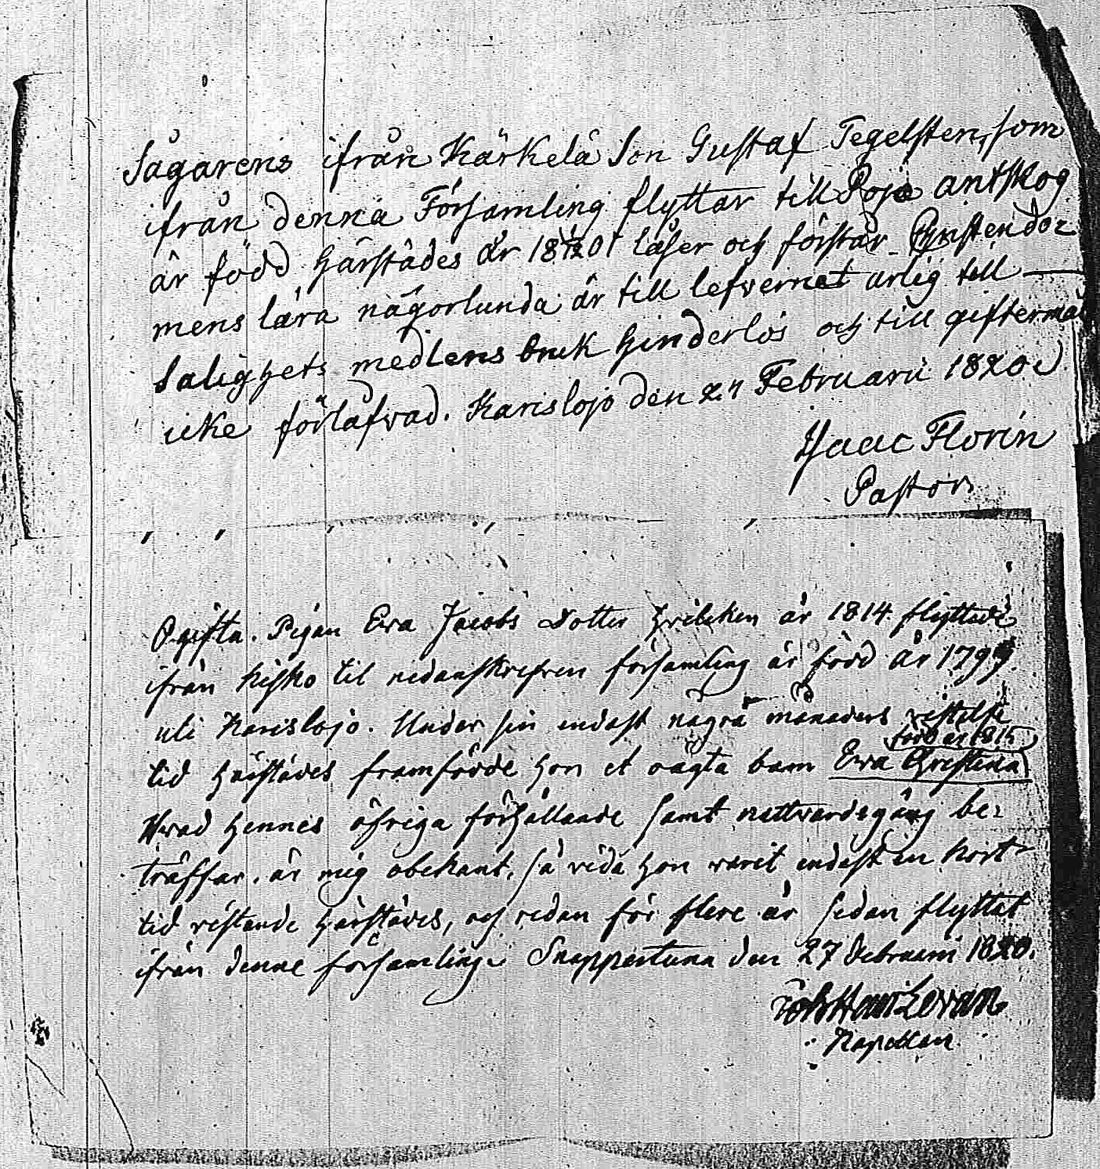 Sågarens ifrån Kärkelä Son Gustaf Tegelsten, som
ifrån denna Församling flyttar till Pojo antskog
är född härstädes år 18 läser och förstår Christendo=
mens lära någorlunda är till lefvernet ärlig till
Salighets medlens bruk hinderlös och till giftermål
icke förlåfvad. Karislojo den 24 Februarii 1820
Isaac Florin
Pastor
Ogifta Pigan Eva Jacobs Dotter år 1814 flyttade
ifrån Kisko til nedanskrefven församling är född år 1799
uti Karislojo. Under sin endast några månaders vistelse
född år 1814
tid härstädes framfödde hon et oägta barn Eva Christina
Hvad hennes öfriga förhållande samt nattvardsgång be=
träffar, är mig obekant, så vida hon varit endast en kort
tid vistande härstädes, och redan för flere år sedan flyttat
ifrån denne församling. Snappertuna den 27 Februarii 1820.
Kapellan